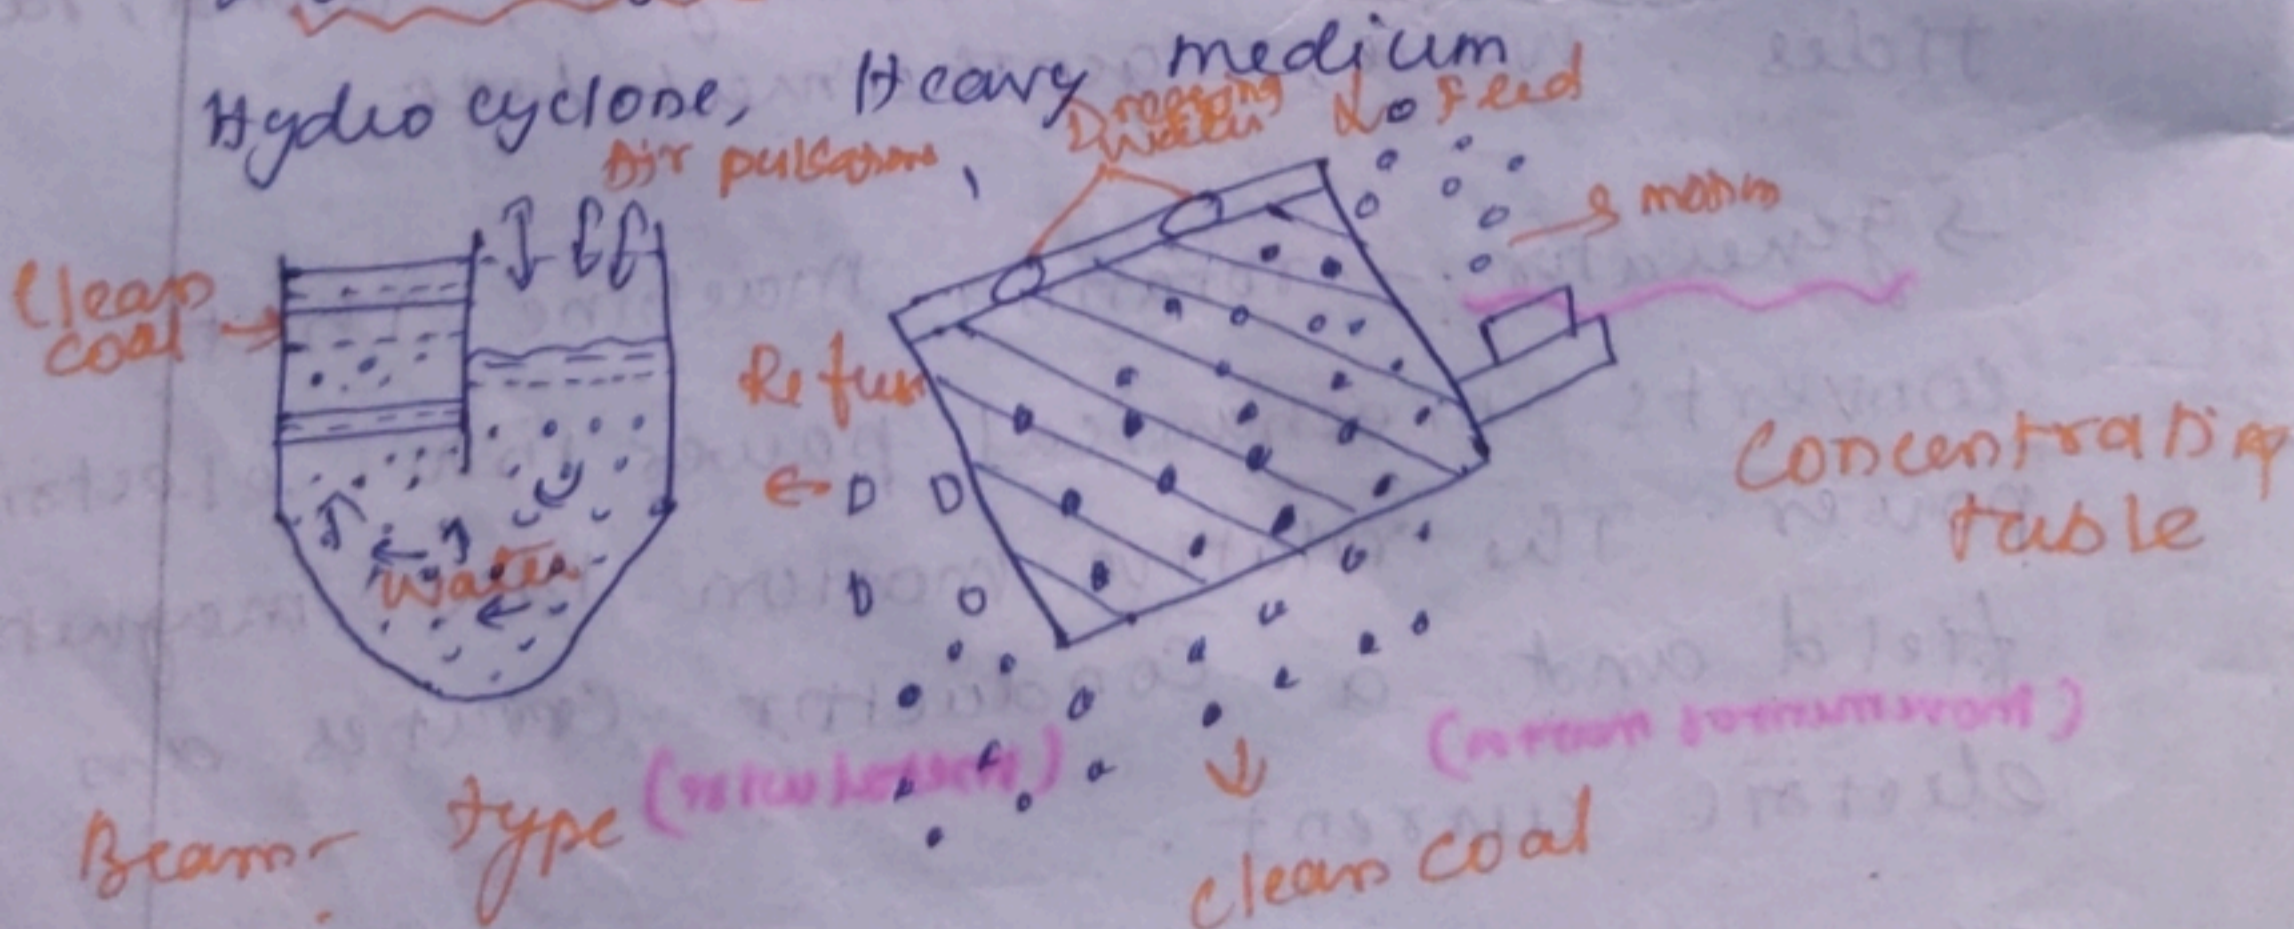 Hydro cyclone, Heavy medium
Air pulsations
Dressing
water
Feed
motion
Clean
coal
Refuse
Concentrating
table
water
Beam- type
clean coal